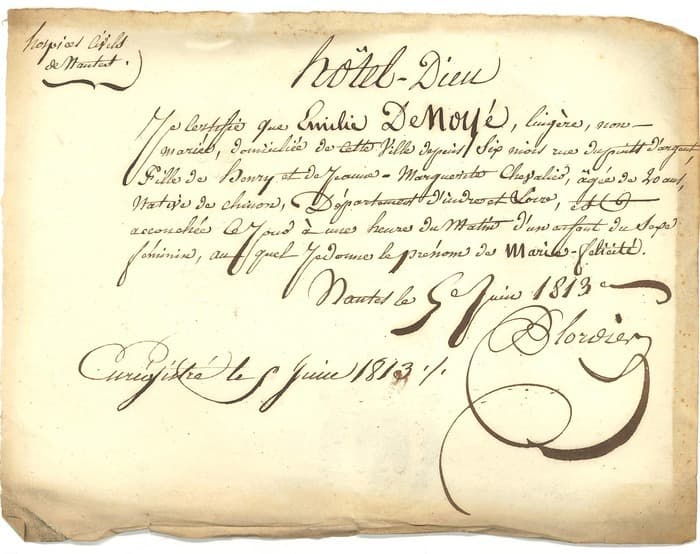 hospices Civils
de Nantes.
hôtel-Dieu
Je Certifie que Emilie DeNoyé, lingère, non-
mariée, domiciliée de cette Ville depuis Six mois rue dupuits d'argent
Fille de henry et de Jeanne-Marguerite Chevalier, âgée de 20 ans,
Native de chinon, Département d'indre et Loire,
accouchée Ce Jour à une heure du Matin d'un enfant du Sexe
féminin, au quel Je donne le prénom de Marie-félicité.
Nantes le 5e Juin 1813
Enrégistré le 5 Juin 1813 ./.